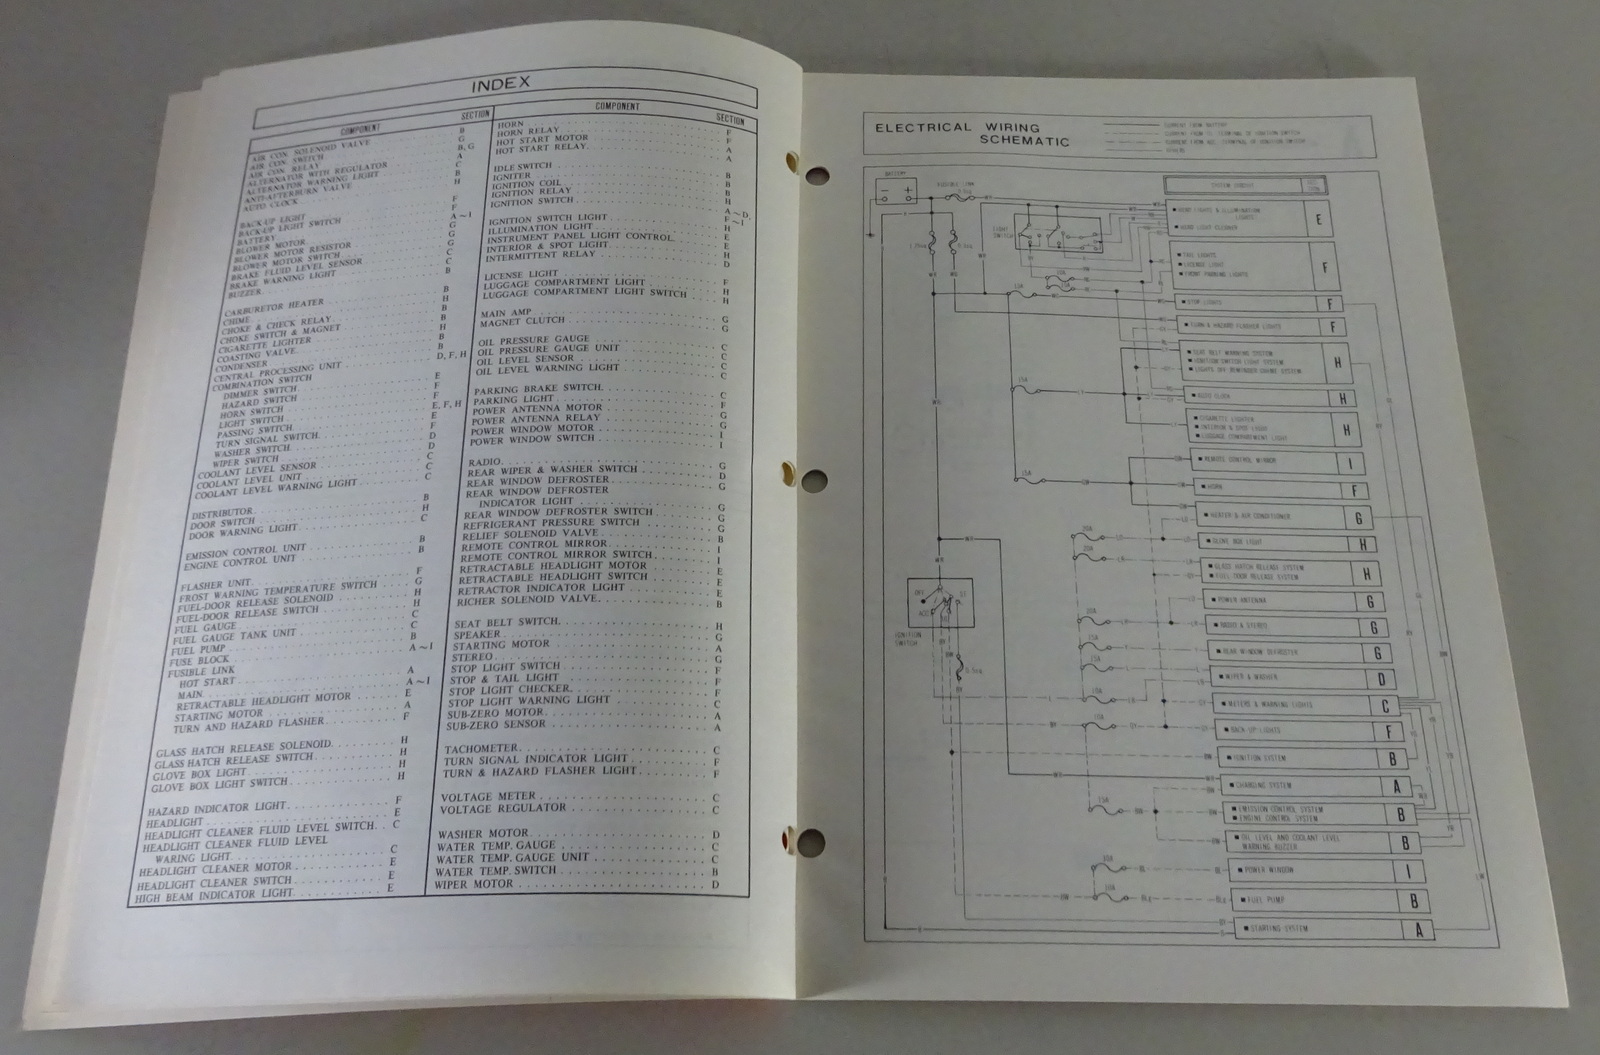 INDEX
COMPONENT SECTION
AIR CON. SOLENOID VALVE B
AIR CON. SWITCH G
AIR CON. RELAY B, G
ALTERNATOR WITH REGULATOR A
ALTERNATOR WARNING LIGHT C
ANTI-AFTERBURN VALVE B
AUTO CLOCK H
BACK-UP LIGHT F
BACK-UP LIGHT SWITCH F
BATTERY A~I
BLOWER MOTOR G
BLOWER MOTOR RESISTOR G
BLOWER MOTOR SWITCH G
BRAKE FLUID LEVEL SENSOR C
BRAKE WARNING LIGHT C
BUZZER B
CARBURETOR HEATER B
CHIME H
CHOKE & CHECK RELAY B
CHOKE SWITCH & MAGNET B
CIGARETTE LIGHTER H
COASTING VALVE B
CONDENSER B
CENTRAL PROCESSING UNIT D, F, H
COMBINATION SWITCH
DIMMER SWITCH E
HAZARD SWITCH F
HORN SWITCH F
LIGHT SWITCH E, F, H
PASSING SWITCH E
TURN SIGNAL SWITCH F
WASHER SWITCH D
WIPER SWITCH D
COOLANT LEVEL SENSOR C
COOLANT LEVEL UNIT C
COOLANT LEVEL WARNING LIGHT C
DISTRIBUTOR B
DOOR SWITCH H
DOOR WARNING LIGHT C
EMISSION CONTROL UNIT B
ENGINE CONTROL UNIT B
FLASHER UNIT F
FROST WARNING TEMPERATURE SWITCH G
FUEL-DOOR RELEASE SOLENOID H
FUEL-DOOR RELEASE SWITCH H
FUEL GAUGE C
FUEL GAUGE TANK UNIT C
FUEL PUMP B
FUSE BLOCK A~I
FUSIBLE LINK
HOT START A
MAIN A~I
RETRACTABLE HEADLIGHT MOTOR E
STARTING MOTOR A
TURN AND HAZARD FLASHER F
GLASS HATCH RELEASE SOLENOID H
GLASS HATCH RELEASE SWITCH H
GLOVE BOX LIGHT H
GLOVE BOX LIGHT SWITCH H
HAZARD INDICATOR LIGHT F
HEADLIGHT E
HEADLIGHT CLEANER FLUID LEVEL SWITCH C
HEADLIGHT CLEANER FLUID LEVEL
WARING LIGHT C
HEADLIGHT CLEANER MOTOR E
HEADLIGHT CLEANER SWITCH E
HIGH BEAM INDICATOR LIGHT E
COMPONENT SECTION
HORN F
HORN RELAY F
HOT START MOTOR A
HOT START RELAY A
IDLE SWITCH B
IGNITER B
IGNITION COIL B
IGNITION RELAY H
IGNITION SWITCH A~D, F~I
IGNITION SWITCH LIGHT H
ILLUMINATION LIGHT E
INSTRUMENT PANEL LIGHT CONTROL E
INTERIOR & SPOT LIGHT H
INTERMITTENT RELAY D
LICENSE LIGHT F
LUGGAGE COMPARTMENT LIGHT H
LUGGAGE COMPARTMENT LIGHT SWITCH H
MAIN AMP G
MAGNET CLUTCH G
OIL PRESSURE GAUGE C
OIL PRESSURE GAUGE UNIT C
OIL LEVEL SENSOR C
OIL LEVEL WARNING LIGHT C
PARKING BRAKE SWITCH C
PARKING LIGHT F
POWER ANTENNA MOTOR G
POWER ANTENNA RELAY G
POWER WINDOW MOTOR I
POWER WINDOW SWITCH I
RADIO G
REAR WIPER & WASHER SWITCH D
REAR WINDOW DEFROSTER G
REAR WINDOW DEFROSTER
INDICATOR LIGHT G
REAR WINDOW DEFROSTER SWITCH G
REFRIGERANT PRESSURE SWITCH G
RELIEF SOLENOID VALVE B
REMOTE CONTROL MIRROR I
REMOTE CONTROL MIRROR SWITCH I
RETRACTABLE HEADLIGHT MOTOR E
RETRACTABLE HEADLIGHT SWITCH E
RETRACTOR INDICATOR LIGHT E
RICHER SOLENOID VALVE B
SEAT BELT SWITCH H
SPEAKER G
STARTING MOTOR A
STEREO G
STOP LIGHT SWITCH F
STOP & TAIL LIGHT F
STOP LIGHT CHECKER F
STOP LIGHT WARNING LIGHT C
SUB-ZERO MOTOR A
SUB-ZERO SENSOR A
TACHOMETER C
TURN SIGNAL INDICATOR LIGHT F
TURN & HAZARD FLASHER LIGHT F
VOLTAGE METER C
VOLTAGE REGULATOR C
WASHER MOTOR D
WATER TEMP. GAUGE C
WATER TEMP. GAUGE UNIT C
WATER TEMP. SWITCH B
WIPER MOTOR D
ELECTRICAL WIRING
SCHEMATIC
BATTERY
LIGHT SWITCH
IGNITION SWITCH
OFF
ACC
HEAD LIGHTS & ILLUMINATION LIGHTS
HEAD LIGHT CLEANER E
TAIL LIGHTS
LICENSE LIGHT
FRONT PARKING LIGHTS F
STOP LIGHTS F
TURN & HAZARD FLASHER LIGHTS F
SEAT BELT WARNING SYSTEM
IGNITION SWITCH LIGHT SYSTEM
LIGHTS OFF REMINDER CHIME SYSTEM H
AUTO CLOCK H
CIGARETTE LIGHTER
INTERIOR & SPOT LIGHT
LUGGAGE COMPARTMENT LIGHT H
REMOTE CONTROL MIRROR I
HORN F
HEATER & AIR CONDITIONER G
GLOVE BOX LIGHT H
GLASS HATCH RELEASE SYSTEM
FUEL DOOR RELEASE SYSTEM H
POWER ANTENNA G
RADIO & STEREO G
REAR WINDOW DEFROSTER G
WIPER & WASHER D
METERS & WARNING LIGHTS C
BACK UP LIGHTS F
IGNITION SYSTEM B
CHARGING SYSTEM A
EMISSION CONTROL SYSTEM
ENGINE CONTROL SYSTEM B
OIL LEVEL AND COOLANT LEVEL
WARNING BUZZER B
POWER WINDOW I
FUEL PUMP B
STARTING SYSTEM A